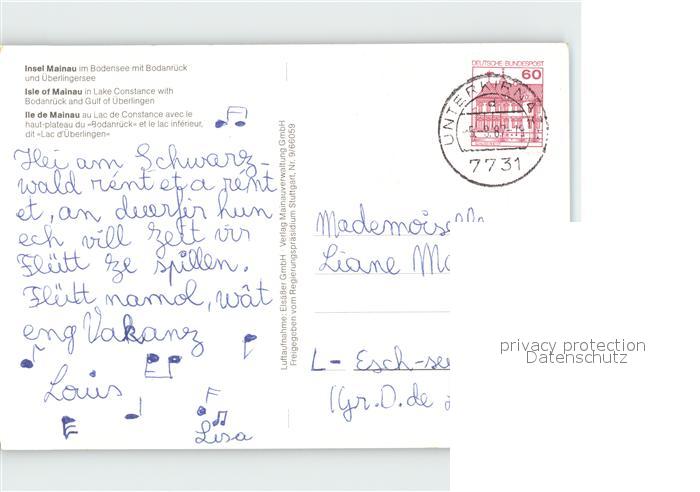 Insel Mainau im Bodensee mit Bodanrück
und Überlingersee
Isle of Mainau in Lake Constance with
Bodanrück and Gulf of Überlingen
Ile de Mainau au Lac de Constance avec le
haut-plateau du »Bodanrück« et le lac inférieur,
dit »Lac d'Überlingen«
Hei am Schwarz-
wald rént et a rént
et, an duerfir hun
ech vill Zeit vir
Flütt ze spillen.
Flütt namol, wat
eng Vakanz
Louis
F
Lisa
Luftaufnahme: Elsäßer GmbH · Verlag Mainauverwaltung GmbH
Freigegeben vom Regierungspräsidium Stuttgart, Nr. 9/66059
DEUTSCHE BUNDESPOST
60
UNTERKIRNA
d
7731
Mademoiselle
Liane
L - Esch-sur
(Gr.D.de
privacy protection
Datenschutz